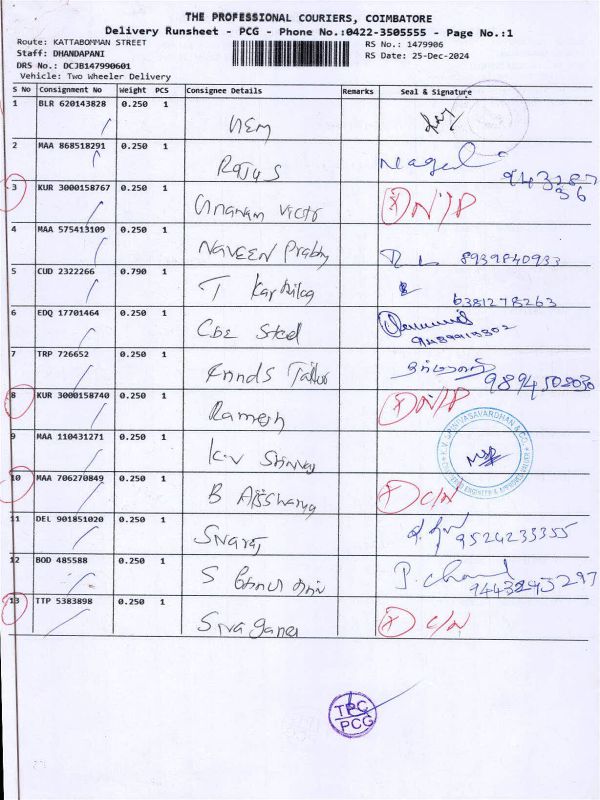 THE PROFESSIONAL COURIERS, COIMBATORE
Delivery Runsheet - PCG - Phone No.:0422-3505555 - Page No.:1
Route: KATTABOMMAN STREET
RS No.: 1479906
Staff: DHANDAPANI
RS Date: 25-Dec-2024
DRS No.: DCJB147990601
Vehicle: Two Wheeler Delivery
S No Consignment No Weight PCS Consignee Details Remarks Seal & Signature
1 BLR 620143828 0.250 1
2 MAA 868518291 0.250 1
3 KUR 3000158767 0.250 1 Gnanam Victo N/P
4 MAA 575413109 0.250 1 NAVEEN Prabhy 8939840933
5 CUD 2322266 0.790 1 T 6381278263
6 EDQ 17701464 0.250 1 CBE Steel
7 TRP 726652 0.250 1 Tailor
8 KUR 3000158740 0.250 1 Ramesh N/P
9 MAA 110431271 0.250 1 K.V
10 MAA 706270849 0.250 1 B C/N
11 DEL 901851020 0.250 1 Sivaraj 9524233355
12 BOD 485588 0.250 1 S P. Chand 9443243297
13 TTP 5383898 0.250 1 Siva Ganes C/N
TPC
PCG